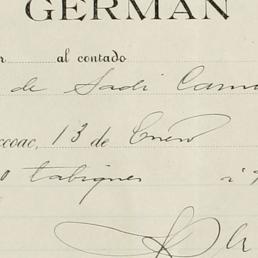 GERMAN
r al contado
de Sadi Carn
xcoac, 13 de Enero
o tabiques á